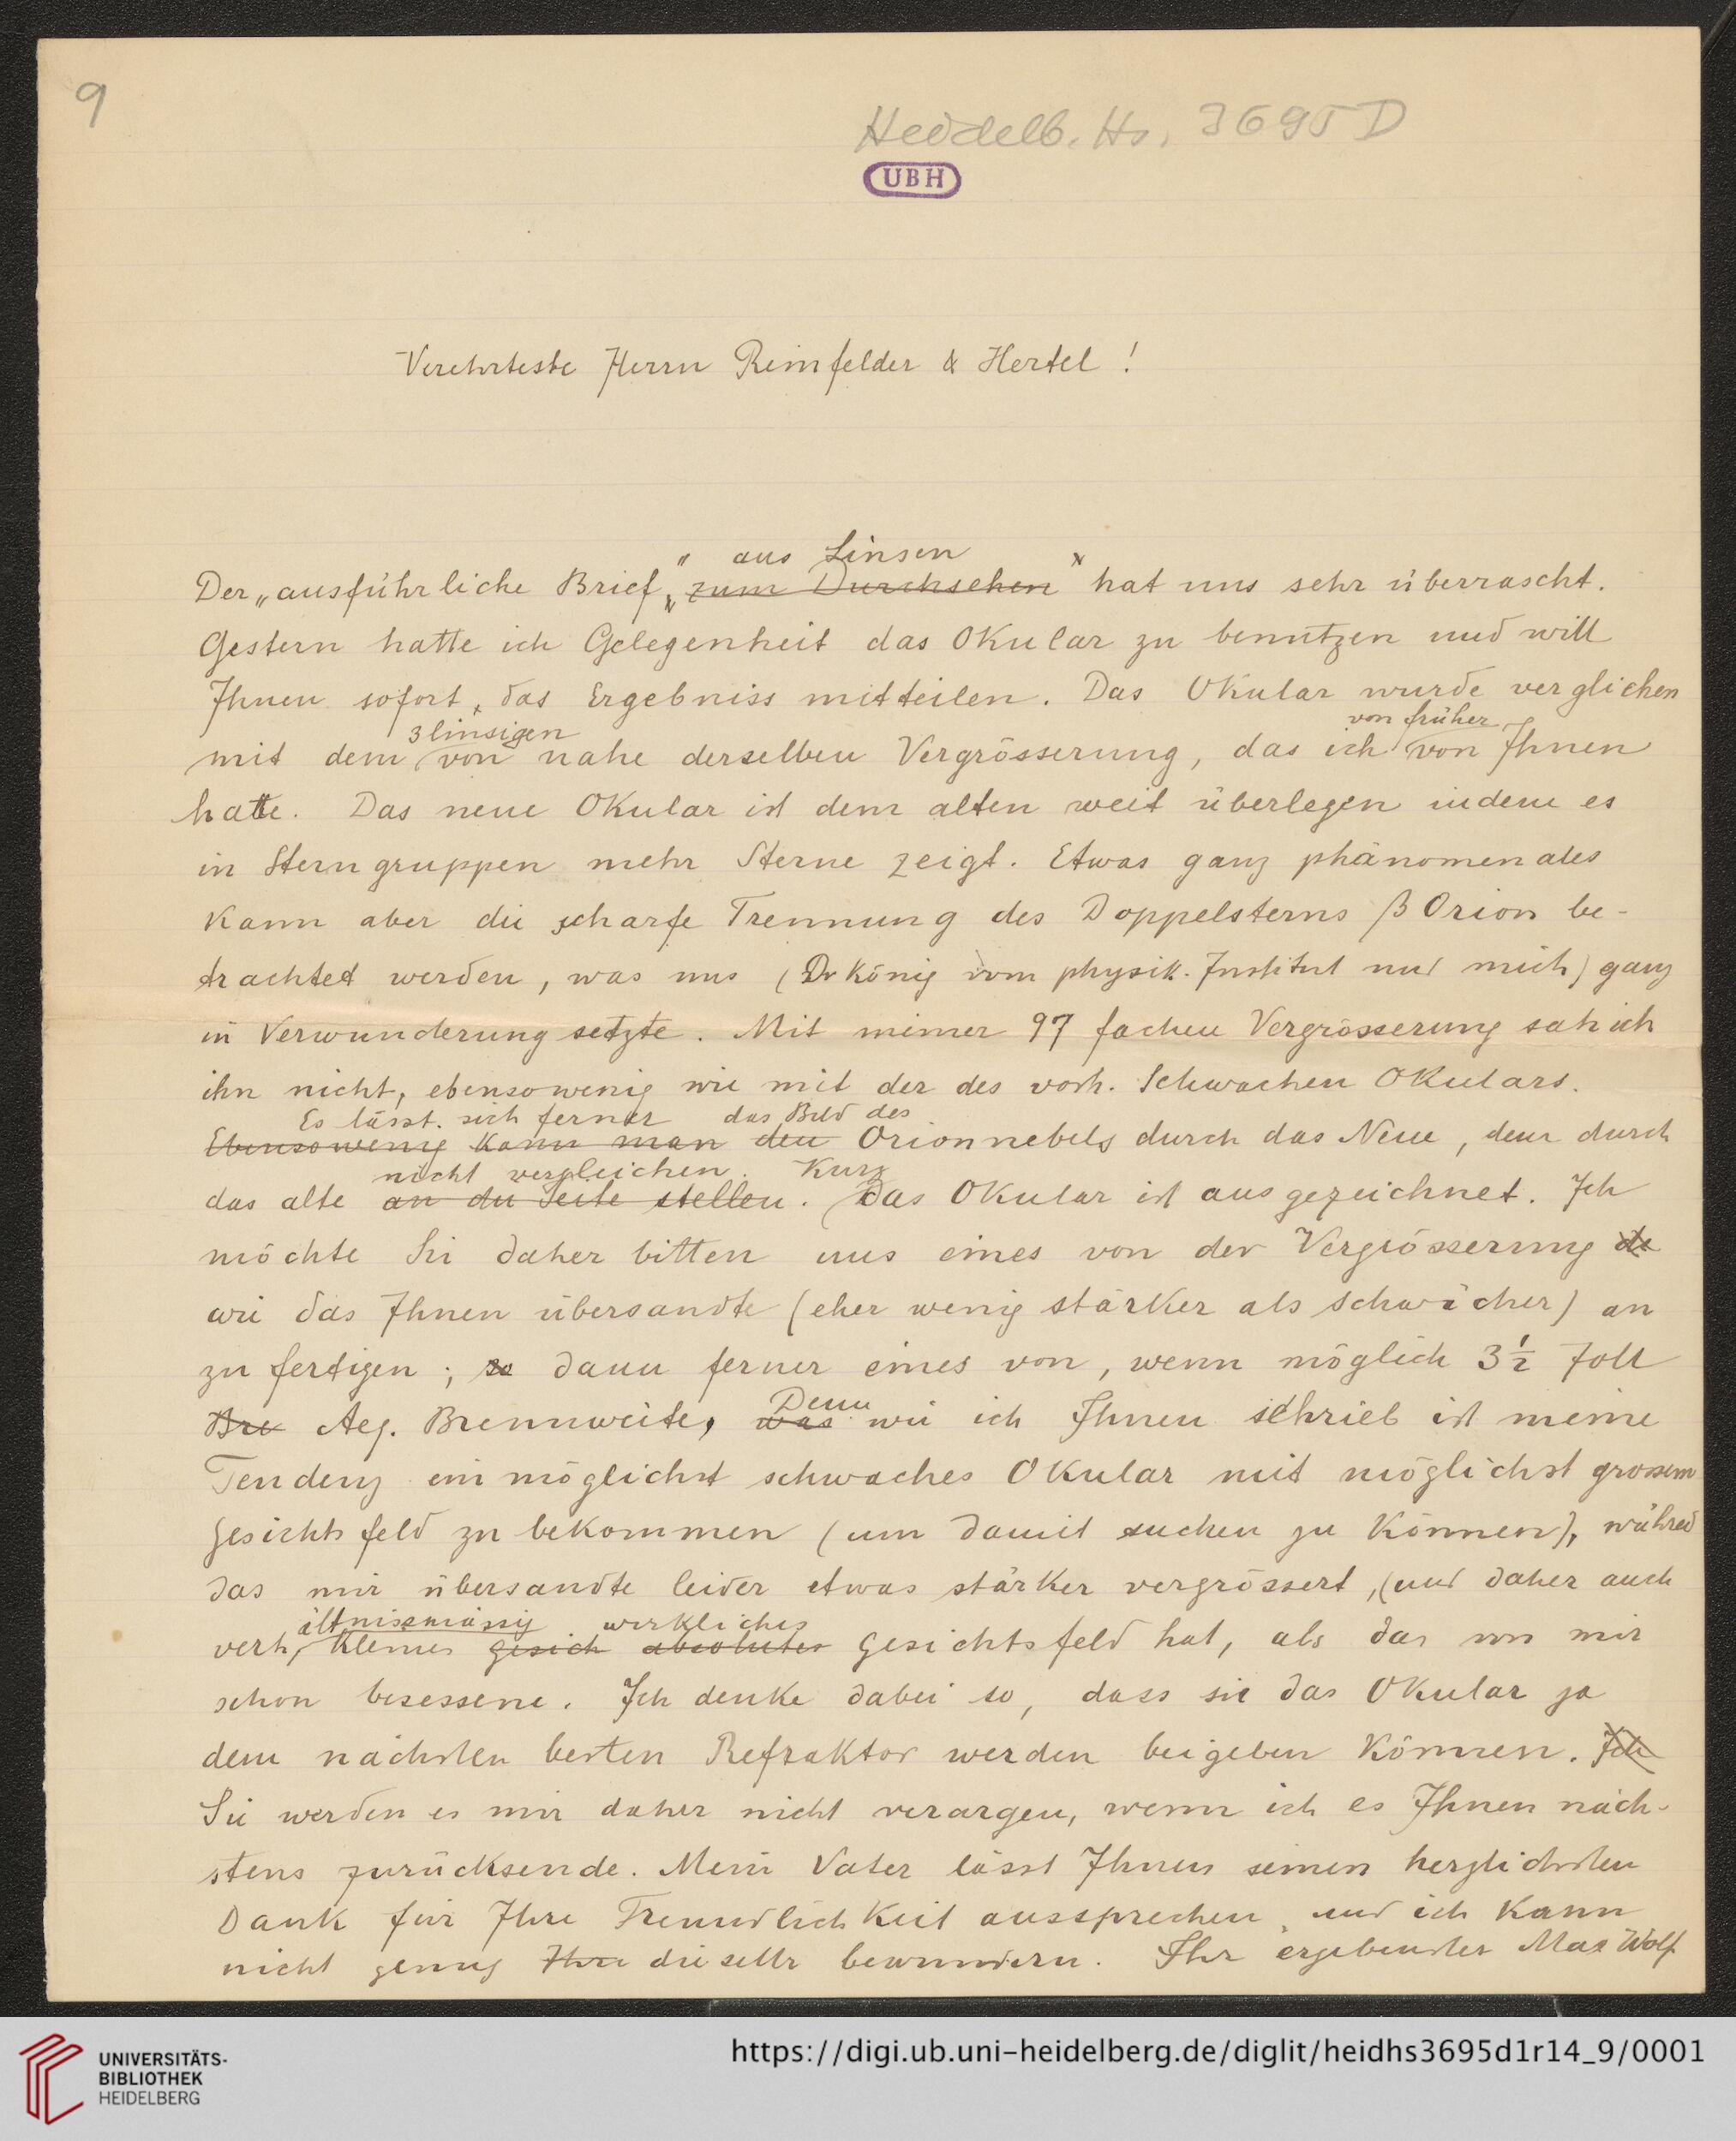 9
Heidelb. Hs. 3695 D
UBH
Verehrteste Herrn Reinfelder & Hertel!
" aus Linsen "
Der „ausführliche Brief „zum Durchsehen" hat uns sehr überrascht.
Gestern hatte ich Gelegenheit das Okular zu benutzen und will
Ihnen sofort das Ergebniss mitteilen. Das Okular wurde verglichen
3 linsigen von früher
mit dem von nahe derselben Vergrösserung, das ich von Ihnen
hatte. Das neue Okular ist dem alten weit überlegen indem es
in Sterngruppen mehr Sterne zeigt. Etwas ganz phänomenales
kann aber die scharfe Trennung des Doppelsterns β Orion be-
trachtet werden, was uns (Dr König vom physik. Institut und mich) ganz
in Verwunderung setzte. Mit meiner 97 fachen Vergrösserung sah ich
ihn nicht, ebensowenig wie mit der des vorh. schwachen Okulars.
Es lässt sich ferner das Bild des
Ebensowenig kann man den Orionnebels durch das Neue, dem durch
nicht vergleichen. Kurz
das alte an die Seite stellen. Das Okular ist ausgezeichnet. Ich
möchte Sie daher bitten uns eines von der Vergrösserung de
wie das Ihnen übersandte (eher wenig stärker als schwächer) an
zu fertigen; so dann ferner eines von, wenn möglich 3 1/2 Zoll
Denn
Bre Aeq. Brennweite, was wie ich Ihnen schrieb ist meine
Tendenz ein möglichst schwaches Okular mit möglichst grossem
Gesichtsfeld zu bekommen (um damit suchen zu können), währed
das mir übersandte leider etwas stärker vergrössert, (und daher auch
ältnissmässig wirkliches
verh, kleines gesich absolutes Gesichtsfeld hat, als das von mir
schon besessene. Ich denke dabei so, dass sie das Okular ja
dem nächsten besten Refraktor werden beigeben können. Ich
Sie werden es mir daher nicht verargen, wenn ich es Ihnen näch-
stens zurücksende. Mein Vater lässt Ihnen seinen herzlichsten
Dank für Ihre Freundlichkeit aussprechen, und ich kann
nicht genug Ihre dieselbe bewundern. Ihr ergebenster Max Wolf
UNIVERSITÄTS-
BIBLIOTHEK
HEIDELBERG
https://digi.ub.uni-heidelberg.de/diglit/heidhs3695d1r14_9/0001